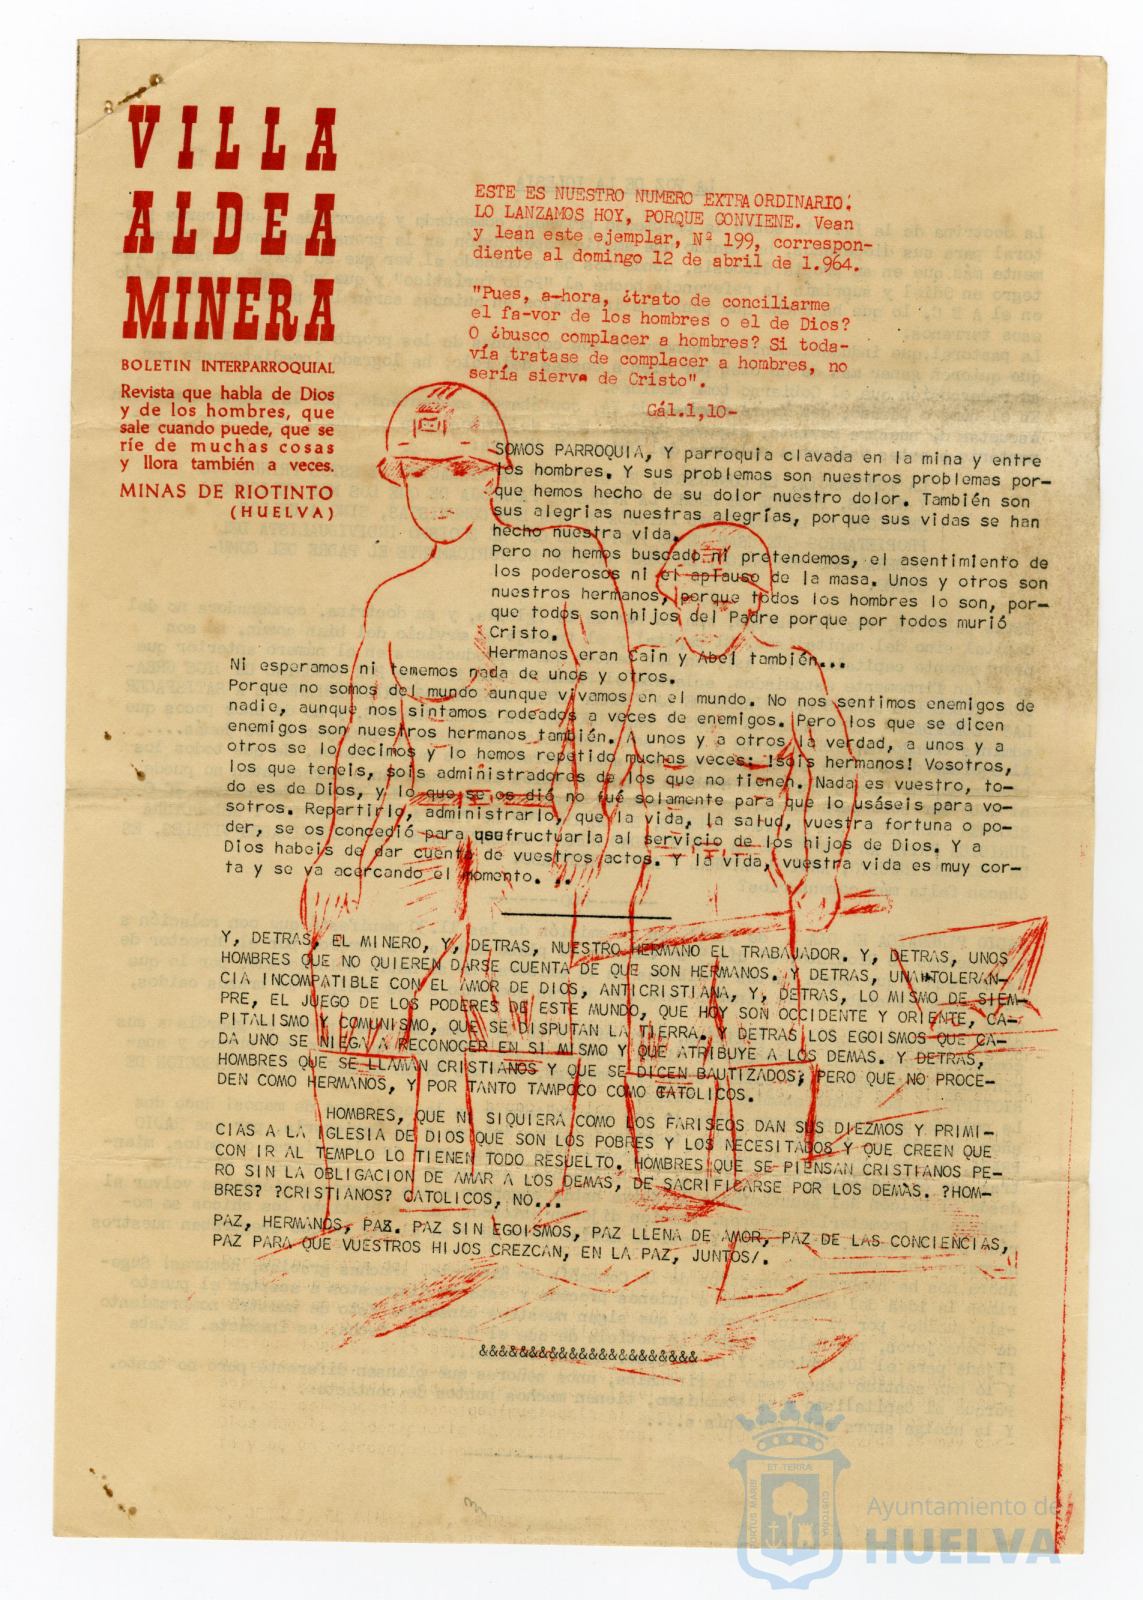 VILLA
ALDEA
MINERA
BOLETIN INTERPARROQUIAL
Revista que habla de Dios
y de los hombres, que
sale cuando puede, que se
ríe de muchas cosas
y llora también a veces.
MINAS DE RIOTINTO
(HUELVA)
ESTE ES NUESTRO NUMERO EXTRAORDINARIO.
LO LANZAMOS HOY, PORQUE CONVIENE. Vean
y lean este ejemplar, Nº 199, correspon-
diente al domingo 12 de abril de 1.964.
"Pues, a-hora, ¿trato de conciliarme
el fa-vor de los hombres o el de Dios?
O ¿busco complacer a hombres? Si toda-
vía tratase de complacer a hombres, no
sería siervo de Cristo".
Gál.1,10-
SOMOS PARROQUIA, Y parroquia clavada en la mina y entre
los hombres. Y sus problemas son nuestros problemas por-
que hemos hecho de su dolor nuestro dolor. También son
sus alegrias nuestras alegrías, porque sus vidas se han
hecho nuestra vida.
Pero no hemos buscado ni pretendemos, el asentimiento de
los poderosos ni el aplauso de la masa. Unos y otros son
nuestros hermanos, porque todos los hombres lo son, por-
que todos son hijos del Padre porque por todos murió
Cristo.
Hermanos eran Cain y Abel también...
Ni esperamos ni tememos nada de unos y otros.
Porque no somos del mundo aunque vivamos en el mundo. No nos sentimos enemigos de
nadie, aunque nos sintamos rodeados a veces de enemigos. Pero los que se dicen
enemigos son nuestros hermanos también. A unos y a otros la verdad, a unos y a
otros se lo decimos y lo hemos repetido muchas veces: !sois hermanos! Vosotros,
los que teneis, sois administradores de los que no tienen. Nada es vuestro, to-
do es de Dios, y lo que se os dió no fué solamente para que lo usáseis para vo-
sotros. Repartirlo, administrarlo, que la vida, la salud, vuestra fortuna o po-
der, se os concedió para usufructuarla al servicio de los hijos de Dios. Y a
Dios habeis de dar cuenta de vuestros actos. Y la vida, vuestra vida es muy cor-
ta y se va acercando el momento. ..
Y, DETRAS, EL MINERO, Y, DETRAS, NUESTRO HERMANO EL TRABAJADOR. Y, DETRAS, UNOS
HOMBRES QUE NO QUIEREN DARSE CUENTA DE QUE SON HERMANOS. Y DETRAS, UNA INTOLERAN-
CIA INCOMPATIBLE CON EL AMOR DE DIOS, ANTICRISTIANA, Y, DETRAS, LO MISMO DE SIEM-
PRE, EL JUEGO DE LOS PODERES DE ESTE MUNDO, QUE HOY SON OCCIDENTE Y ORIENTE, CA-
PITALISMO Y COMUNISMO, QUE SE DISPUTAN LA TIERRA. Y DETRAS LOS EGOISMOS QUE CA-
DA UNO SE NIEGA A RECONOCER EN SI MISMO Y QUE ATRIBUYE A LOS DEMAS. Y DETRAS,
HOMBRES QUE SE LLAMAN CRISTIANOS Y QUE SE DICEN BAUTIZADOS; PERO QUE NO PROCE-
DEN COMO HERMANOS, Y POR TANTO TAMPOCO COMO CATOLICOS.
HOMBRES, QUE NI SIQUIERA COMO LOS FARISEOS DAN SUS DIEZMOS Y PRIMI-
CIAS A LA IGLESIA DE DIOS QUE SON LOS POBRES Y LOS NECESITADOS Y QUE CREEN QUE
CON IR AL TEMPLO LO TIENEN TODO RESUELTO. HOMBRES QUE SE PIENSAN CRISTIANOS PE-
RO SIN LA OBLIGACION DE AMAR A LOS DEMAS, DE SACRIFICARSE POR LOS DEMAS. ?HOM-
BRES? ?CRISTIANOS? CATOLICOS, NO...
PAZ, HERMANOS, PAZ. PAZ SIN EGOISMOS, PAZ LLENA DE AMOR, PAZ DE LAS CONCIENCIAS,
PAZ PARA QUE VUESTROS HIJOS CREZCAN, EN LA PAZ, JUNTOS/.
&&&&&&&&&&&&&&&&&&&&&&
ET-TERRA
PORTUS MARIS
CUSTODIA
Ayuntamiento de
HUELVA